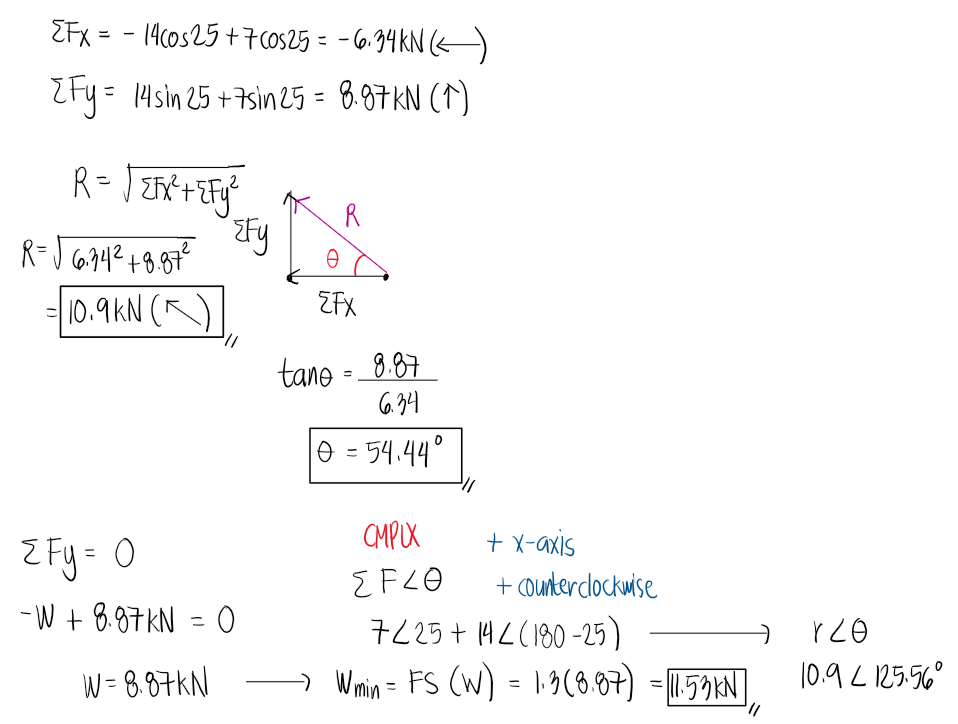 ΣFx = - 14cos25 + 7cos25 = -6.34kN (←)
ΣFy = 14sin25 + 7sin25 = 8.87kN (↑)
R = √ΣFx² + ΣFy²
R = √6.34² + 8.87²
= 10.9kN (↖)
ΣFy
R
θ
ΣFx
tanθ = 8.87/6.34
θ = 54.44°
ΣFy = 0
-W + 8.87kN = 0
W = 8.87kN → Wmin = FS (W) = 1.3(8.87) = 11.53kN
CMPLX
+ x-axis
ΣF∠θ
+ counterclockwise
7∠25 + 14∠(180-25) → r∠θ
10.9∠125.56°